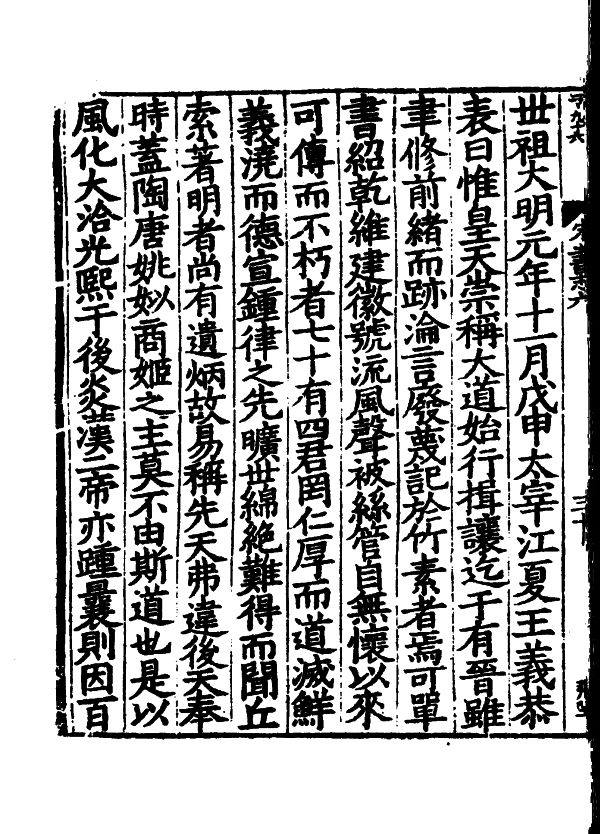 世祖大明元年十一月戊申太宰江夏王義恭
表曰惟皇天崇稱大道始行揖讓迄于有晉雖
聿修前緒而跡淪言廢蔑記於竹素者焉可單
書紹乾維建徽號流風聲被絲管自無懷以來
可傳而不朽者七十有四君罔仁厚而道滅鮮
義澆而德宣鍾律之先曠世綿絶難得而聞丘
索著明者尚有遺炳故易稱先天弗違後天奉
時蓋陶唐姚姒商姬之主莫不由斯道也是以
風化大洽光熙于後炎漢二帝亦踵曩則因百